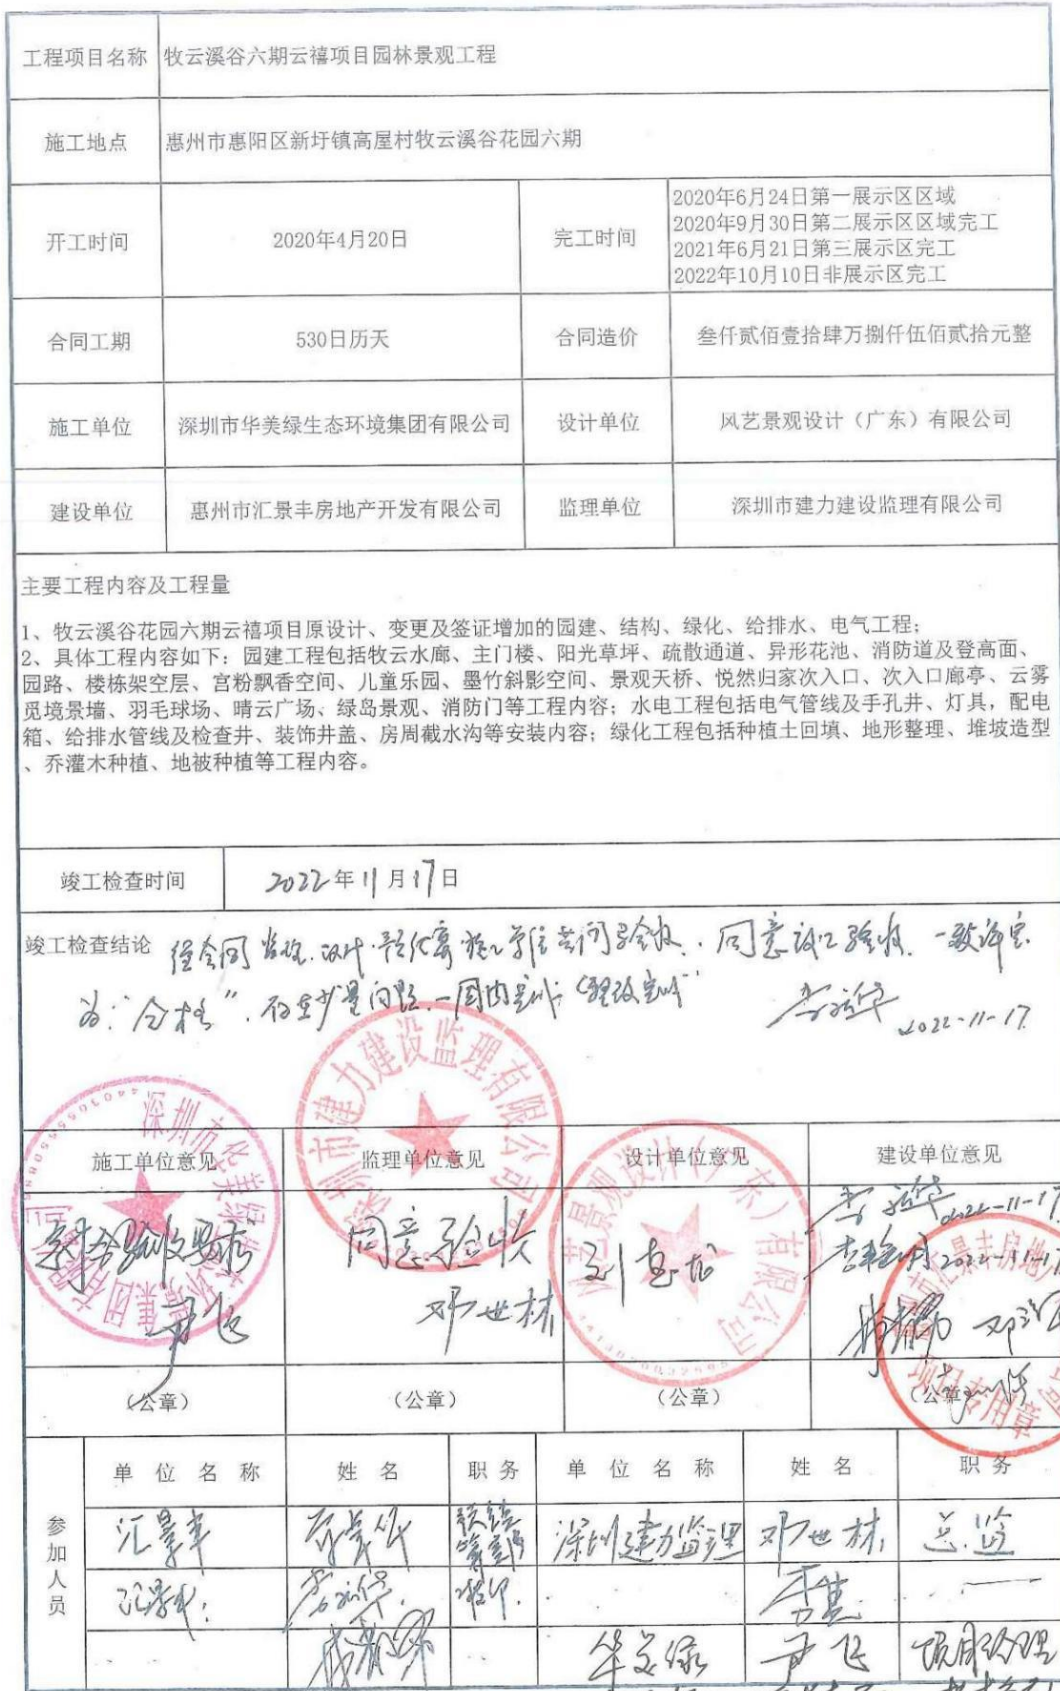 工程项目名称 牧云溪谷六期云禧项目园林景观工程
施工地点 惠州市惠阳区新圩镇高屋村牧云溪谷花园六期
开工时间 2020年4月20日 完工时间
2020年6月24日第一展示区区域
2020年9月30日第二展示区区域完工
2021年6月21日第三展示区完工
2022年10月10日非展示区完工
合同工期 530日历天 合同造价 叁仟贰佰壹拾肆万捌仟伍佰贰拾元整
施工单位 深圳市华美绿生态环境集团有限公司 设计单位 风艺景观设计（广东）有限公司
建设单位 惠州市汇景丰房地产开发有限公司 监理单位 深圳市建力建设监理有限公司
主要工程内容及工程量
1、牧云溪谷花园六期云禧项目原设计、变更及签证增加的园建、结构、绿化、给排水、电气工程；
2、具体工程内容如下：园建工程包括牧云水廊、主门楼、阳光草坪、疏散通道、异形花池、消防道及登高面、
园路、楼栋架空层、宫粉飘香空间、儿童乐园、墨竹斜影空间、景观天桥、悦然归家次入口、次入口廊亭、云雾
觅境景墙、羽毛球场、晴云广场、绿岛景观、消防门等工程内容；水电工程包括电气管线及手孔井、灯具，配电
箱、给排水管线及检查井、装饰井盖、房周截水沟等安装内容；绿化工程包括种植土回填、地形整理、堆坡造型
、乔灌木种植、地被种植等工程内容。
竣工检查时间 2022年11月17日
竣工检查结论 经会同监理、设计 施工单位共同验收，同意竣工验收，一致评定
为：“合格”，存在少量问题，一周内
2022-11-17
深圳市建力建设监理有限公司
施工单位意见 监理单位意见 设计单位意见 建设单位意见
同意验收 2022-11-17
邓世林
尹飞
项目专用章
（公章） （公章） （公章） （公章）
参加人员
单位名称 姓名 职务 单位名称 姓名 职务
汇景丰 深圳建力监理 邓世林 总监
汇景丰
华美绿 尹飞 项目经理